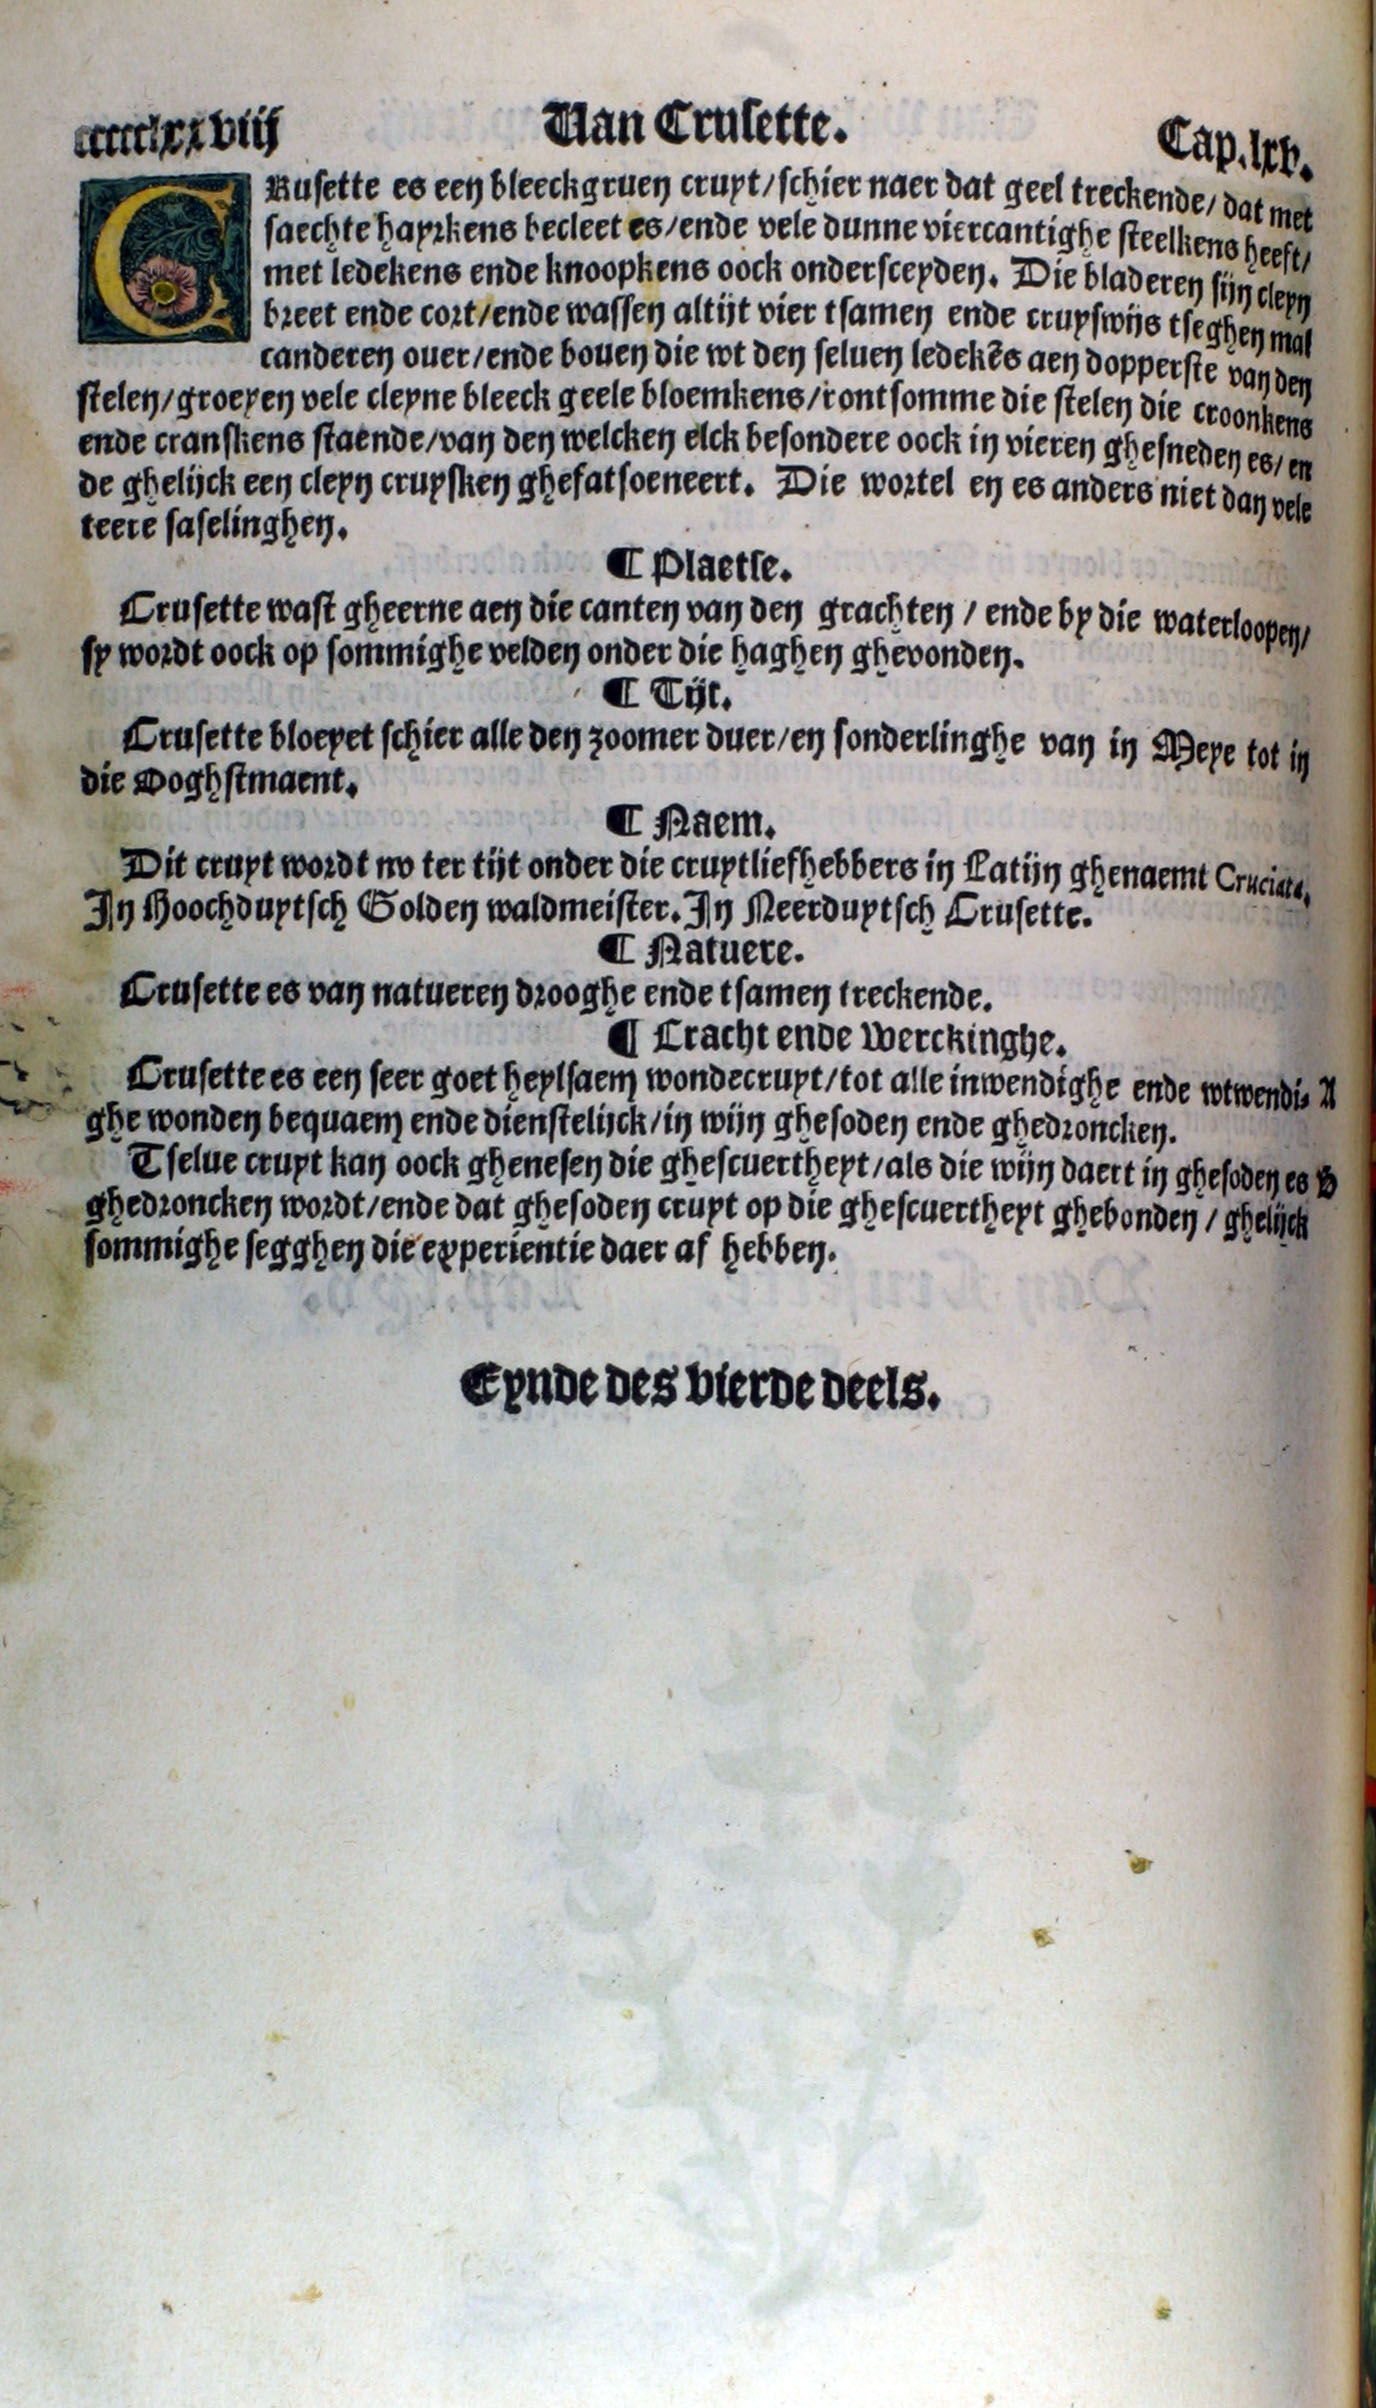 cccclxxviij Van Crusette. Cap.lxv.
CRusette es een bleeckgruen cruyt/schier naer dat geel treckende/dat met
saechte hayrkens becleet es/ende vele dunne viercantighe steelkens heeft/
met ledekens ende knoopkens oock ondersceyden. Die bladeren sijn cleyn
breet ende cort/ende wassen altijt vier tsamen ende cruyswijs tseghen mal
canderen ouer/ende bouen die wt den seluen ledekēs aen dopperste van den
stelen/groeyen vele cleyne bleeck geele bloemkens/rontsomme die stelen die croonkens
ende cranskens staende/van den welcken elck besondere oock in vieren ghesneden es/en
de ghelijck een cleyn cruysken ghefatsoeneert. Die wortel en es anders niet dan vele
teere faselinghen.
¶ Plaetse.
Crusette wast gheerne aen die canten van den grachten / ende by die waterloopen/
sy wordt oock op sommighe velden onder die haghen ghevonden.
¶ Tijt.
Crusette bloeyet schier alle den zoomer duer/en sonderlinghe van in Meye tot in
die Ooghstmaent.
¶ Naem.
Dit cruyt wordt nv ter tijt onder die cruytliefhebbers in Latijn ghenaemt Cruciata.
In Hoochduytsch Golden waldmeister. In Neerduytsch Crusette.
¶ Natuere.
Crusette es van natueren drooghe ende tsamen treckende.
¶ Cracht ende Werckinghe.
Crusette es een seer goet heylsaem wondecruyt/tot alle inwendighe ende wtwendi- A
ghe wonden bequaem ende dienstelijck/in wijn ghesoden ende ghedroncken.
Tselue cruyt kan oock ghenesen die ghescuertheyt/als die wijn daert in ghesoden es B
ghedroncken wordt/ende dat ghesoden cruyt op die ghescuertheyt ghebonden / ghelijck
sommighe segghen die experientie daer af hebben.
Eynde des vierde deels.